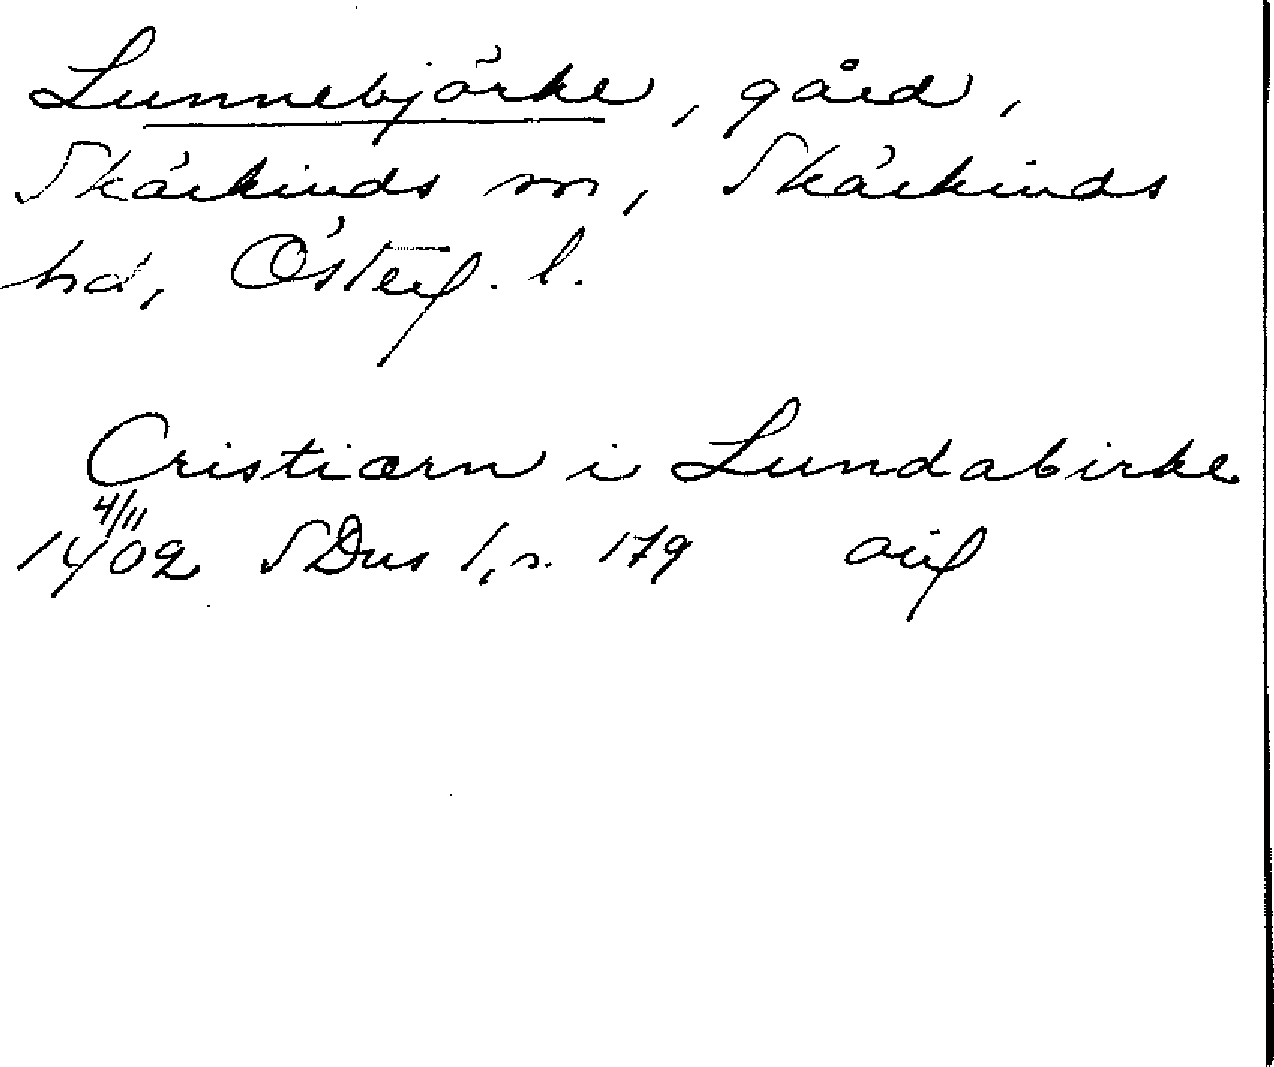 Lunnebjörke, gård,
Skärkinds sn, Skärkinds
hd, Österg. l.
Cristiærn i Lundabirke
4/11
1402 SDns 1, s. 179 avg